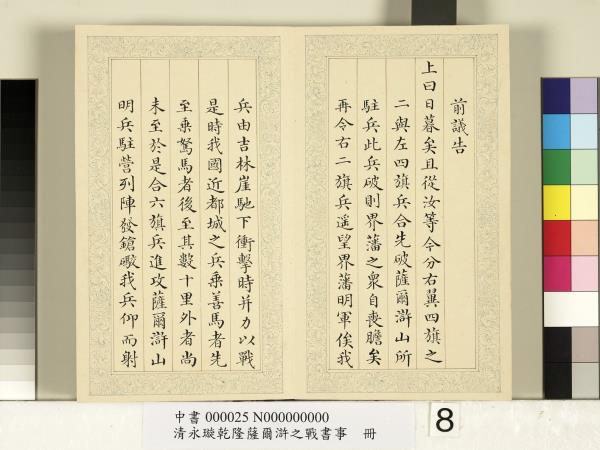 前議告
上曰日暮矣且從汝等令分右翼四旗之
二與左四旗兵合先破薩爾滸山所
駐兵此兵破則界藩之衆自喪膽矣
再令右二旗兵遥望界藩明軍俟我
兵由吉林崖馳下衝擊時并力以戰
是時我國近都城之兵乘善馬者先
至乘駑馬者後至其數十里外者尚
未至於是合六旗兵進攻薩爾滸山
明兵駐營列陣發鎗礮我兵仰而射
中書 000025 N000000000
清永璇乾隆薩爾滸之戰書事 冊
8